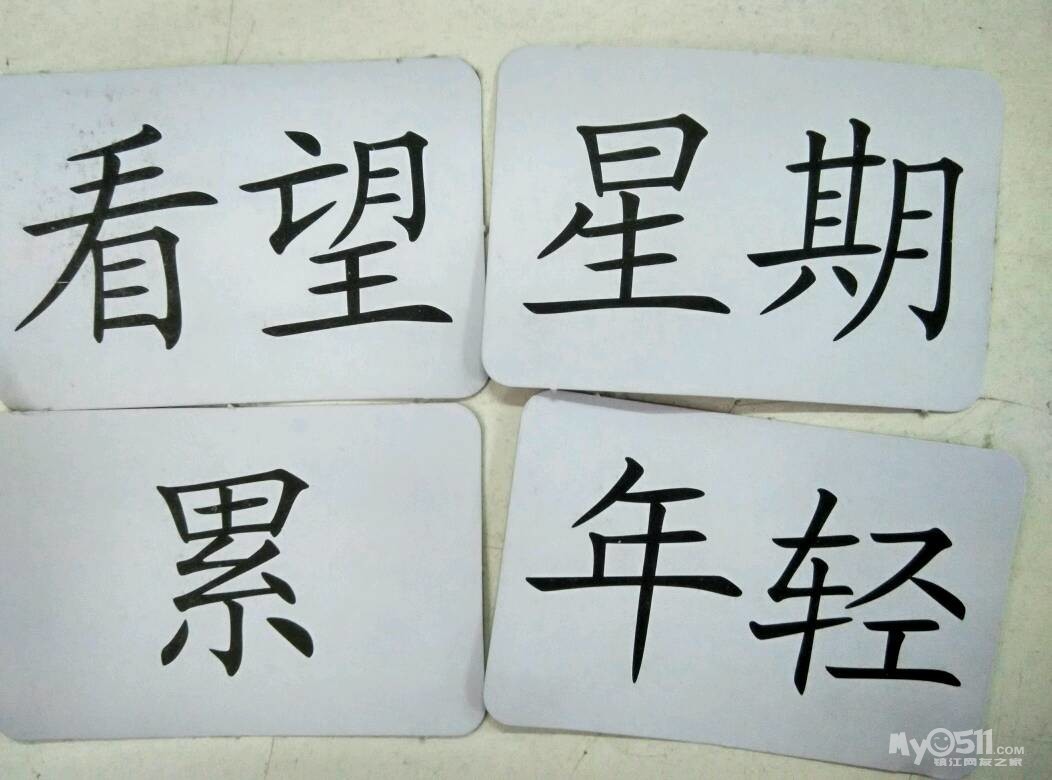 看望
星期
累
年轻
My0511.COM
镇江网友之家